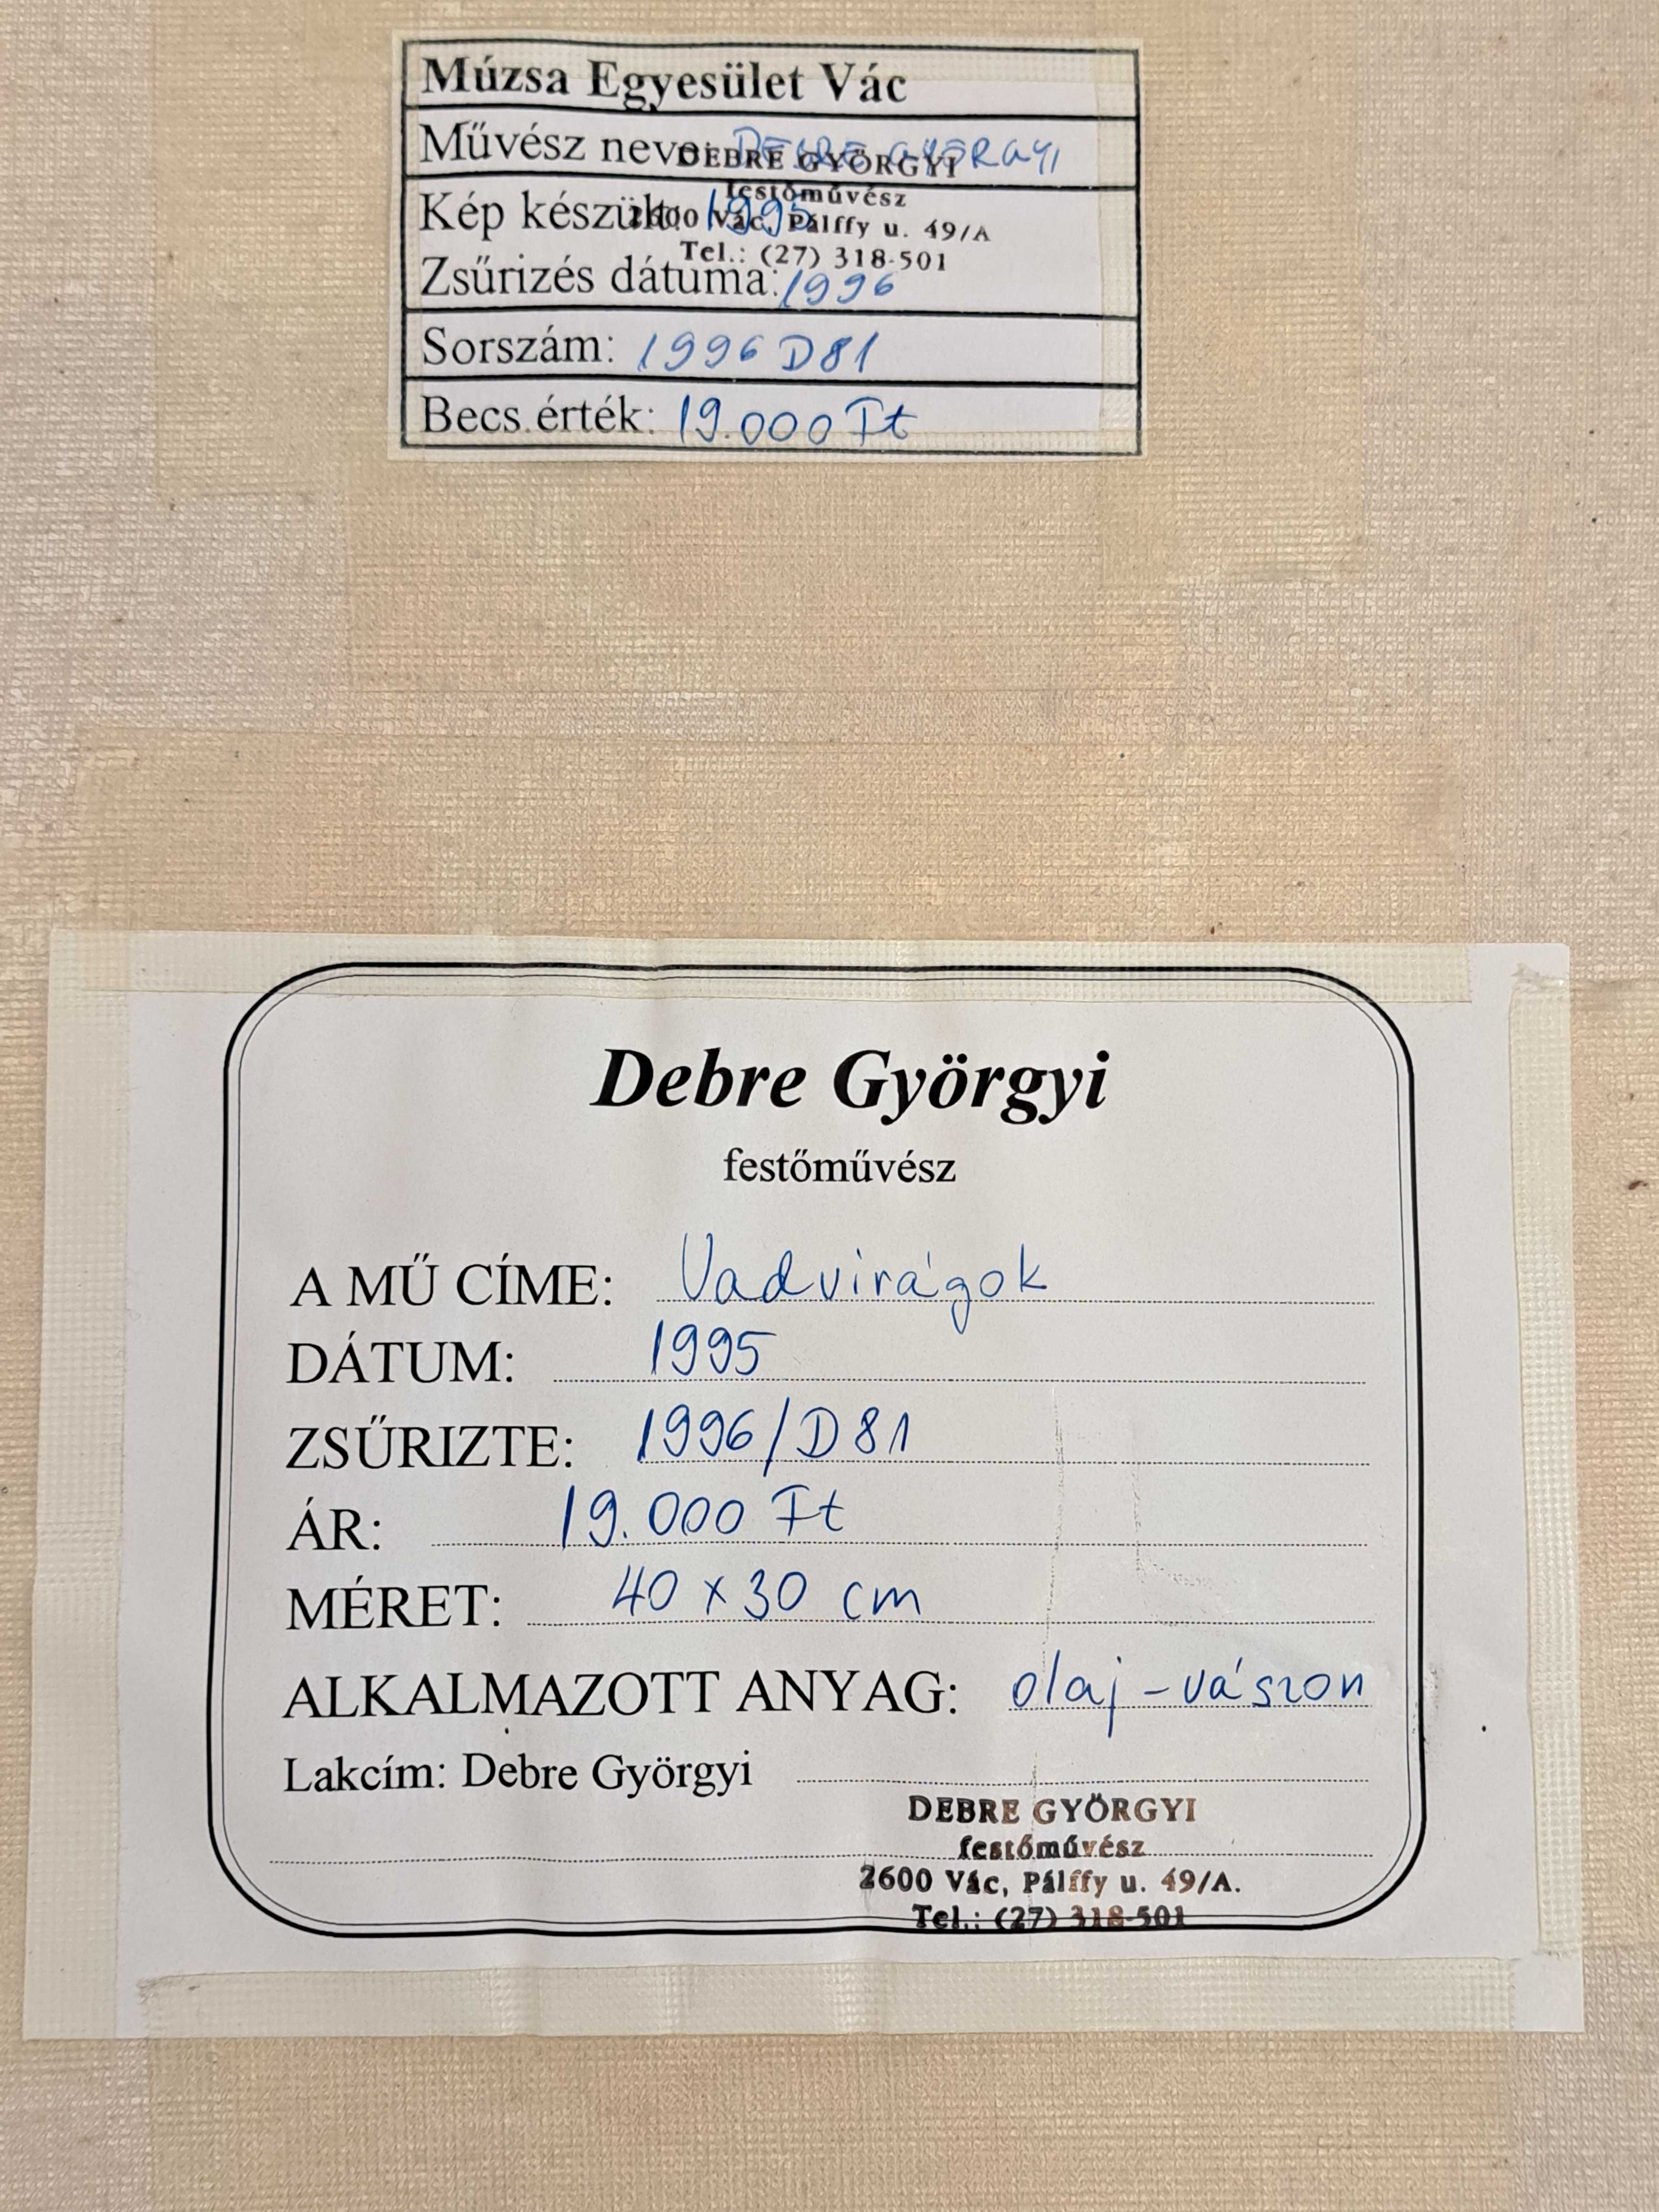 Múzsa Egyesület Vác
Művész neve: DEBRE GYÖRGYI
DEBRE GYÖRGYI
festőművész
Kép készült: 1995
2600 Vác, Pálffy u. 49/A
Tel.: (27) 318-501
Zsűrizés dátuma: 1996
Sorszám: 1996 D81
Becs.érték: 19.000 Ft
Debre Györgyi
festőművész
A MŰ CÍME: Vadvirágok
DÁTUM: 1995
ZSŰRIZTE: 1996/D81
ÁR: 19.000 Ft
MÉRET: 40 x 30 cm
ALKALMAZOTT ANYAG: olaj-vászon
Lakcím: Debre Györgyi
DEBRE GYÖRGYI
festőművész
2600 Vác, Pálffy u. 49/A.
Tel.: (27) 318-501